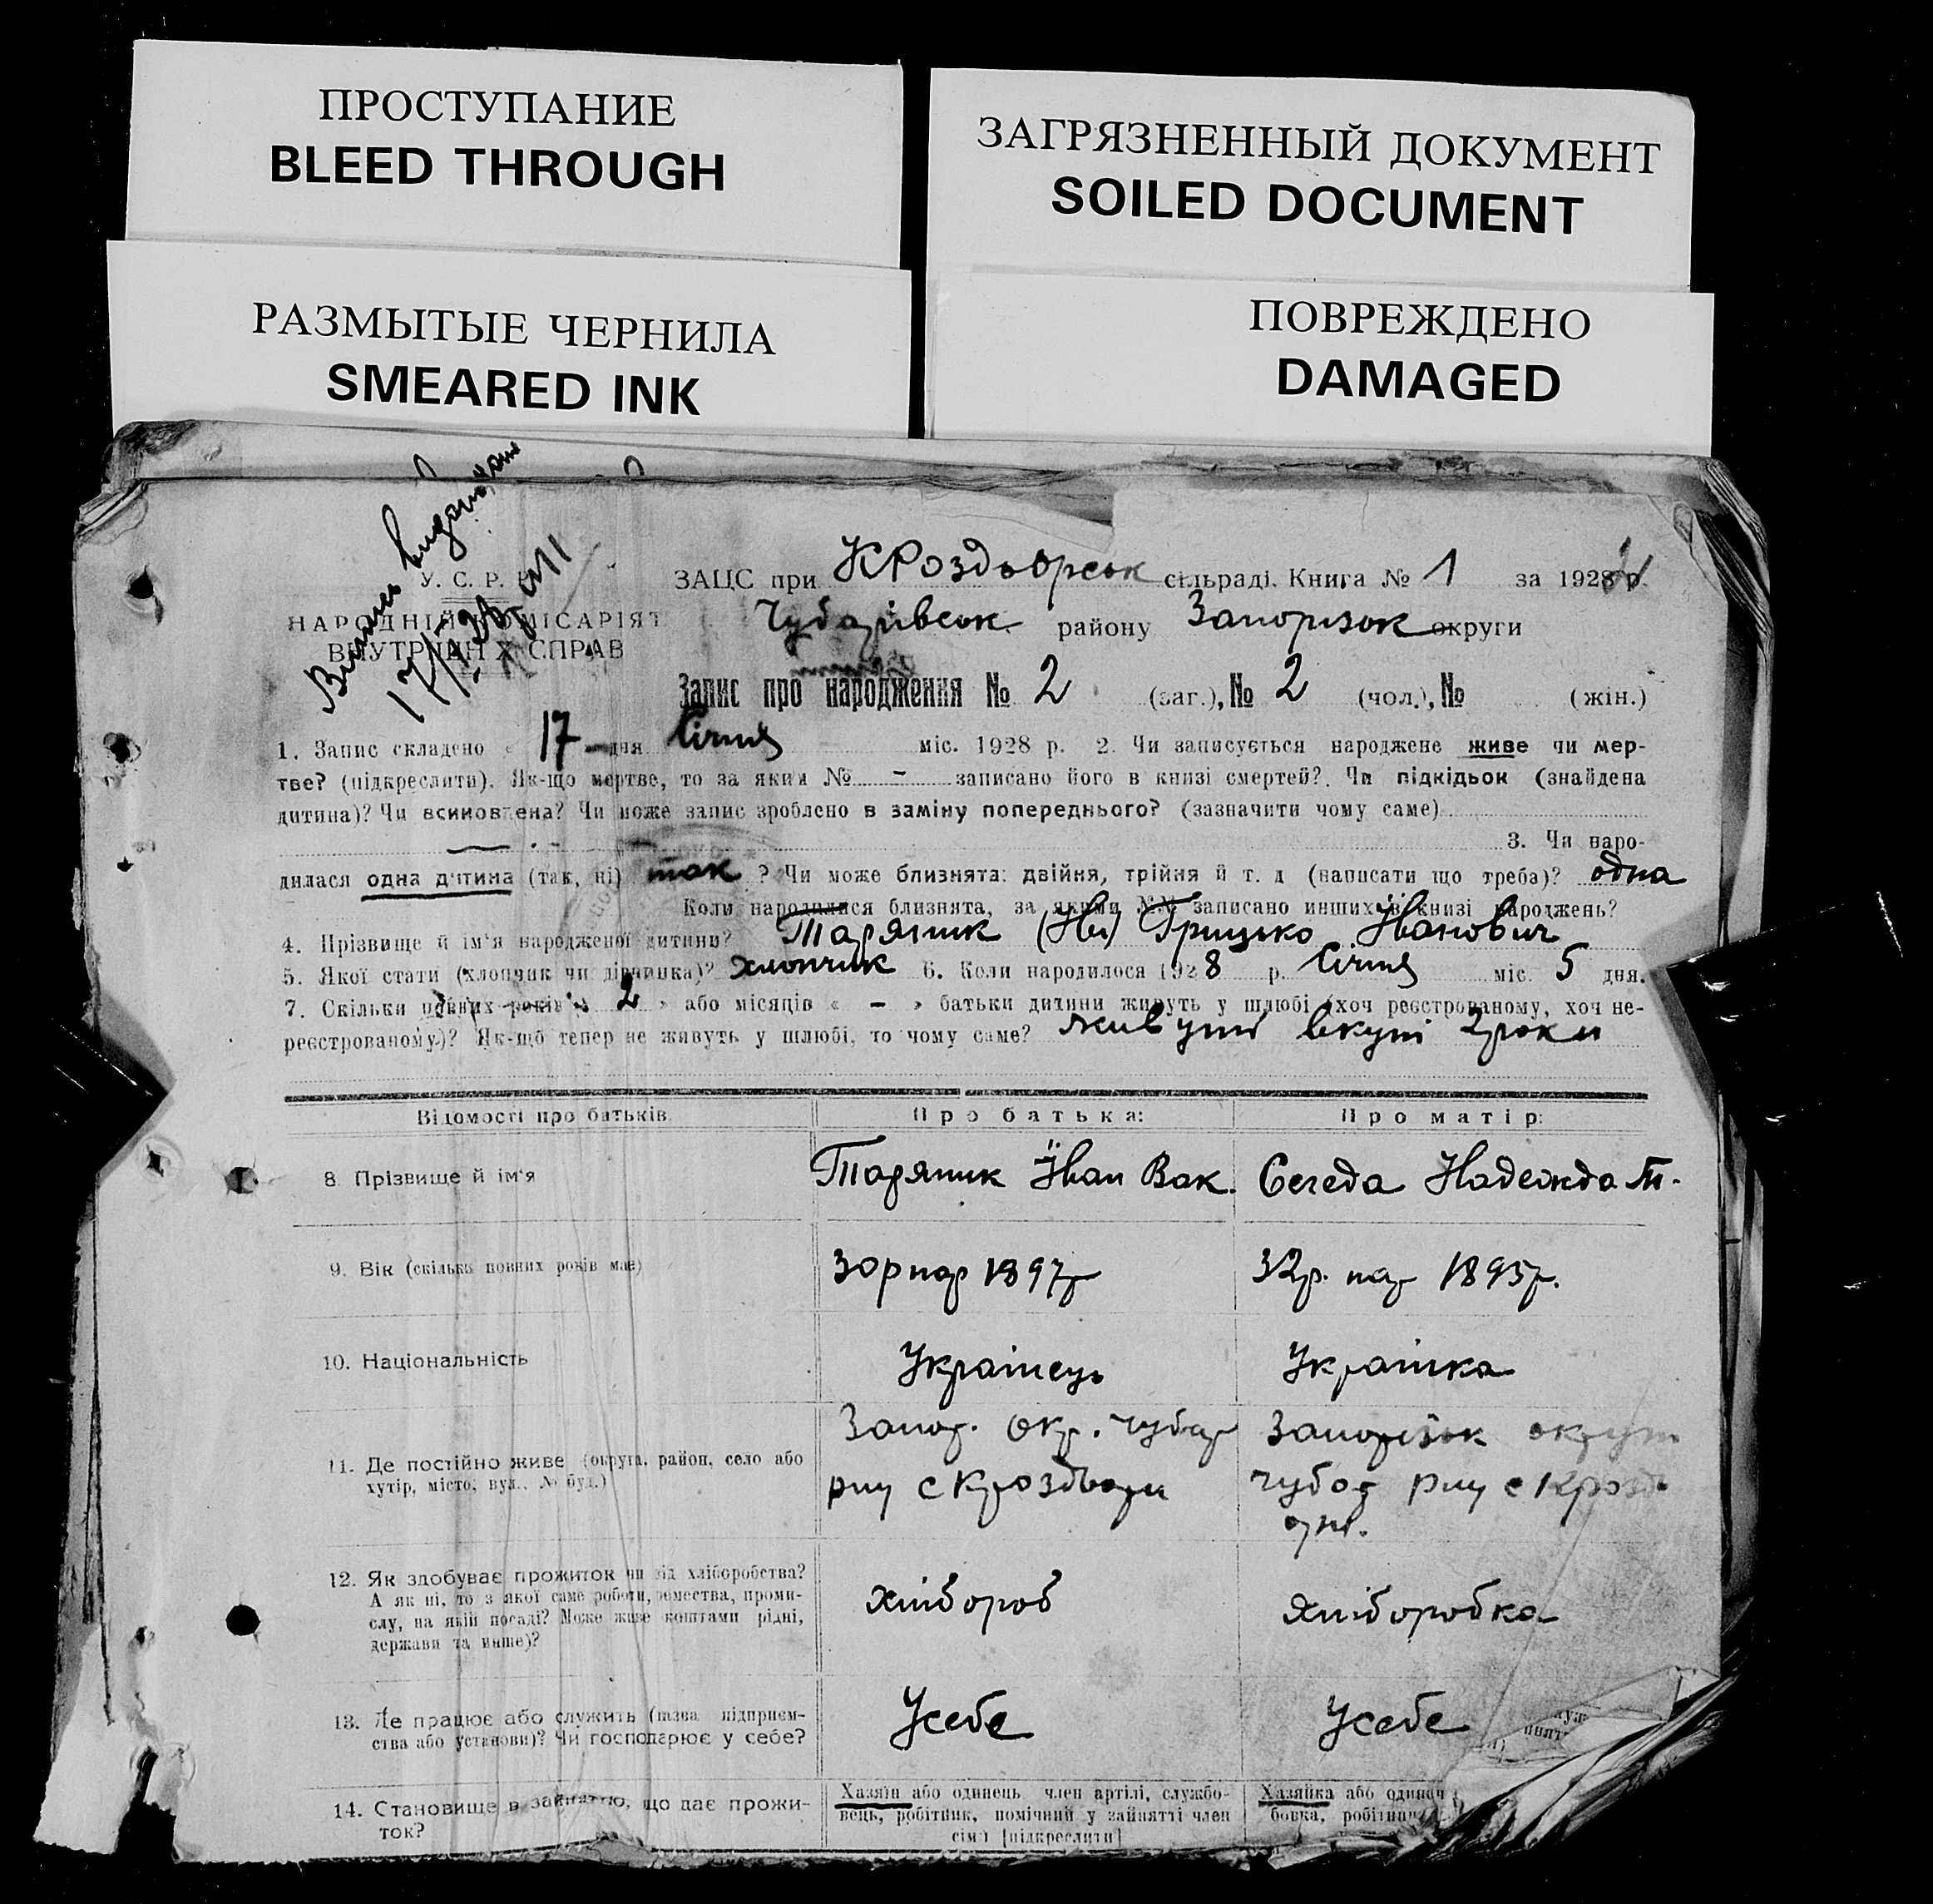 ПРОСТУПАНИЕ
BLEED THROUGH
ЗАГРЯЗНЕННЫЙ ДОКУМЕНТ
SOILED DOCUMENT
РАЗМЫТЫЕ ЧЕРНИЛА
SMEARED INK
ПОВРЕЖДЕНО
DAMAGED
У. С. Р. Р.
НАРОДНІЙ КОМІСАРІЯТ
ВНУТРІШНІХ СПРАВ
ЗАЦС при сільраді. Книга № 1 за 1928 р.
Чубарівськ. району Запорізьк округи
Запис про народження № 2 (заг.), № 2 (чол.), № (жін.)
1. Запис складено « 17 дня Січня міс. 1928 р. 2. Чи записується народжене живе чи мер-
тве? (підкреслити). Як-що мертве, то за яким № - записано його в книзі смертей? Чи підкідьок (знайдена
дитина)? Чи всиновлена? Чи може запис зроблено в заміну попереднього? (зазначити чому саме)
3. Чи наро-
дилася одна дитина (так, ні) так ? Чи може близнята: двійня, трійня й т. д (написати що треба)? одна
Коли народилися близнята, за якими №№ записано инших в книзі народжень?
4. Прізвище й ім'я народженої дитини? Таряник Грицько Іванович
5. Якої стати (хлопчик чи дівчинка)? хлопчик 6. Коли народилося 1928 р. Січня міс. 5 дня.
7. Скільки повних років « 2 » або місяців « - » батьки дитини живуть у шлюбі (хоч реєстрованому, хоч не-
реєстрованому)? Як-що тепер не живуть у шлюбі, то чому саме? живуть вкупі 2 роки
Відомості про батьків
Про батька:
Про матір:
8. Прізвище й ім'я
Таряник Іван Вак.
Середа Надежда Т.
9. Вік (скільки повних років має)
30 р нар 1897 р
32 р. нар 1895 р.
10. Національність
Українець
Українка
11. Де постійно живе (округа, район, село або
хутір, місто, вул., № буд.)
Запор. Окр. Чубар
рну с
Запорізьк округи
Чубар рну с
12. Як здобуває прожиток чи від хліборобства?
А як ні, то з якої саме роботи, ремества, проми-
слу, на якій посаді? Може живе коштами рідні,
держави та инше)?
хлібороб
хліборобка
13. Де працює або служить (назва підприєм-
ства або установи)? Чи господарює у себе?
У себе
У себе
14. Становище в зайняттю, що дає прожи-
ток?
Хазяїн або одинець член артілі, службо-
вець, робітник, помічний у зайнятті член
сім'ї [підкреслити]
Хазяйка або одинач
бовка, робітниц